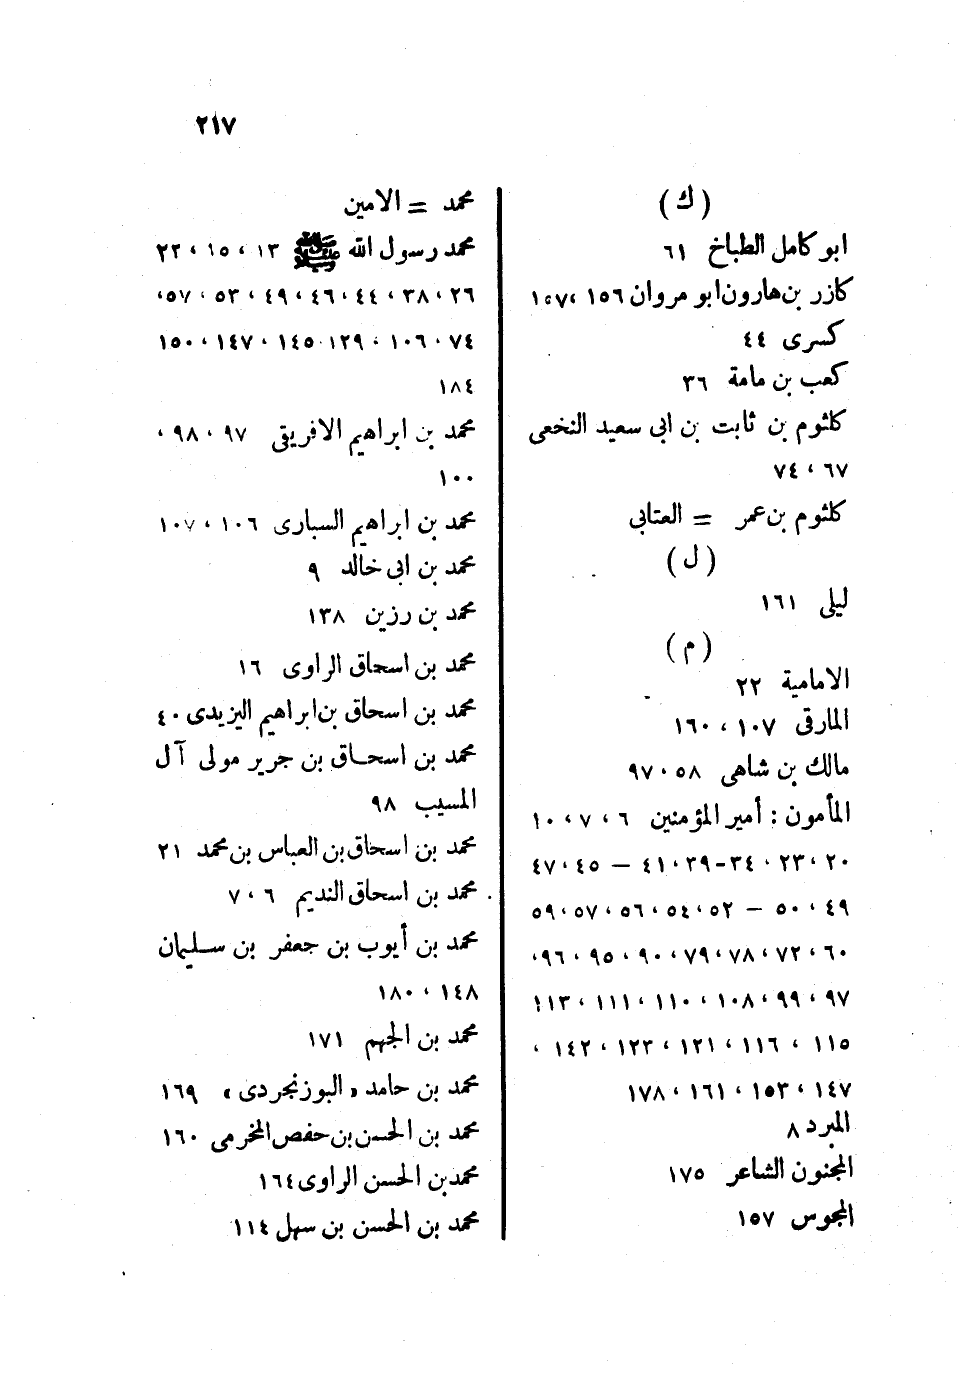 ٢١٧
( ك )
ابو كامل الطباخ ٦١
كازر بن هارون ابو مروان ١٥٦ ، ١٥٧
كسرى ٤٤
كعب بن مامة ٣٦
كلثوم بن ثابت بن ابى سعيد النخعى
٦٧ ، ٧٤
كلثوم بن عمر = العتابي
( ل )
ليلى ١٦١
( م )
الامامية ٢٢
المارقى ١٠٧ ، ١٦٠
مالك بن شاهى ٥٨ ، ٩٧
المأمون : أمير المؤمنين ٦ ، ٧ ، ١٠
٢٠ ، ٢٣ ، ٣٤-٣٩ ، ٤١ – ٤٥ ، ٤٧
٤٩ ، ٥٠ – ٥٢ ، ٥٤ ، ٥٦ ، ٥٧ ، ٥٩
٦٠ ، ٧٢ ، ٧٨ ، ٧٩ ، ٩٠ ، ٩٥ ، ٩٦ ،
٩٧ ، ٩٩ ، ١٠٨ ، ١١٠ ، ١١١ ، ١١٣
١١٥ ، ١١٦ ، ١٢١ ، ١٢٣ ، ١٤٢ ،
١٤٧ ، ١٥٣ ، ١٦١ ، ١٧٨
المبرد ٨
المجنون الشاعر ١٧٥
المجوس ١٥٧
محمد = الامين
محمد رسول الله ﷺ ١٣ ، ١٥ ، ٢٢
٢٦ ، ٣٨ ، ٤٤ ، ٤٦ ، ٤٩ ، ٥٣ ، ٥٧ ،
٧٤ ، ١٠٦ ، ١٢٩ ، ١٤٥ ، ١٤٧ ، ١٥٠
١٨٤
محمد بن ابراهيم الافريقى ٩٧ ، ٩٨ ،
١٠٠
محمد بن ابراهيم السبارى ١٠٦ ، ١٠٧
محمد بن ابى خالد ٩
محمد بن رزين ١٣٨
محمد بن اسحاق الراوى ١٦
محمد بن اسحاق بن ابراهيم اليزيدى ٤٠
محمد بن اسحاق بن جرير مولى آل
المسيب ٩٨
محمد بن اسحاق بن العباس بن محمد ٢١
محمد بن اسحاق النديم ٦ ، ٧
محمد بن أيوب بن جعفر بن سليمان
١٤٨ ، ١٨٠
محمد بن الجهم ١٧١
محمد بن حامد « البوزنجردى » ١٦٩
محمد بن الحسن بن حفص المخرمى ١٦٠
محمد بن الحسن الراوى ١٦٤
محمد بن الحسن بن سهل ١١٤